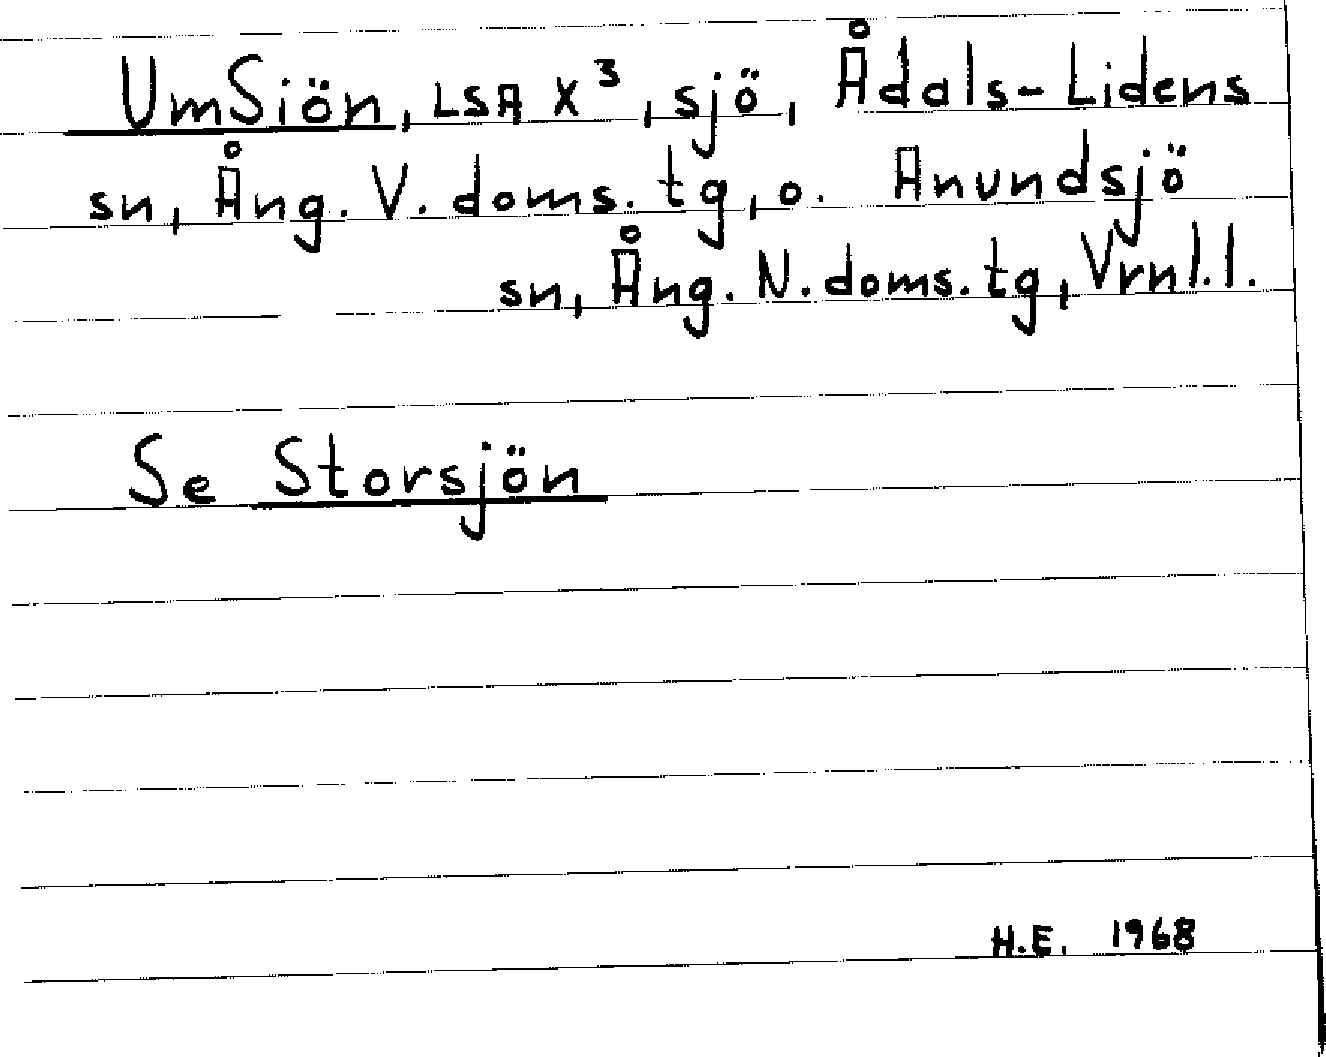 UmSiön, LSA X³, sjö, Ådals-Lidens
sn, Ång. V. doms. tg, o. Anundsjö
sn, Ång. N. doms. tg, Vrnl.l.
Se Storsjön
H.E. 1968